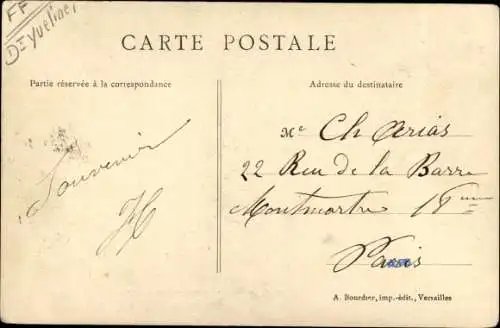 FF
Dt Yvelines
CARTE POSTALE
Partie réservée à la correspondance
Adresse du destinataire
Souvenir
Me Ch Arias
22 Rue de la Barre
Montmartre 18eme
Paris
A. Bourdier, imp.-édit., Versailles